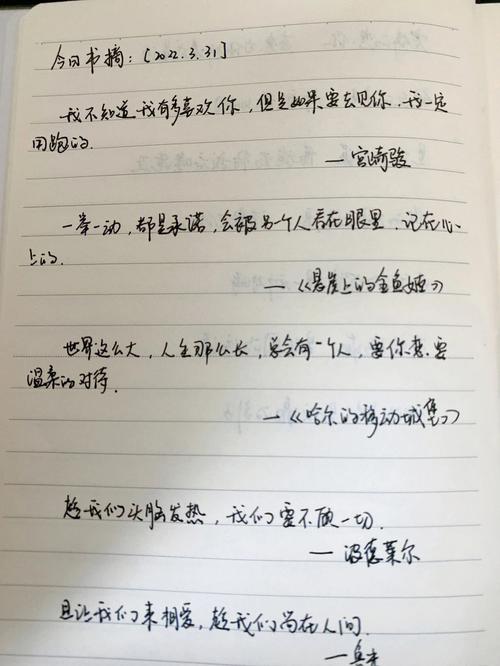 今日书摘：[2022.3.31]
我不知道我有多喜欢你，但是如果要去见你，我一定
用跑的.
—宫崎骏
一举一动，都是承诺，会被另一个人看在眼里，记在心
上的.
—《悬崖上的金鱼姬》
世界这么大，人生那么长，总会有一个人，要你想要
温柔的对待.
—《哈尔的移动城堡》
趁我们头脑发热，我们要不顾一切.
—波德莱尔
且让我们来相爱，趁我们尚在人间.